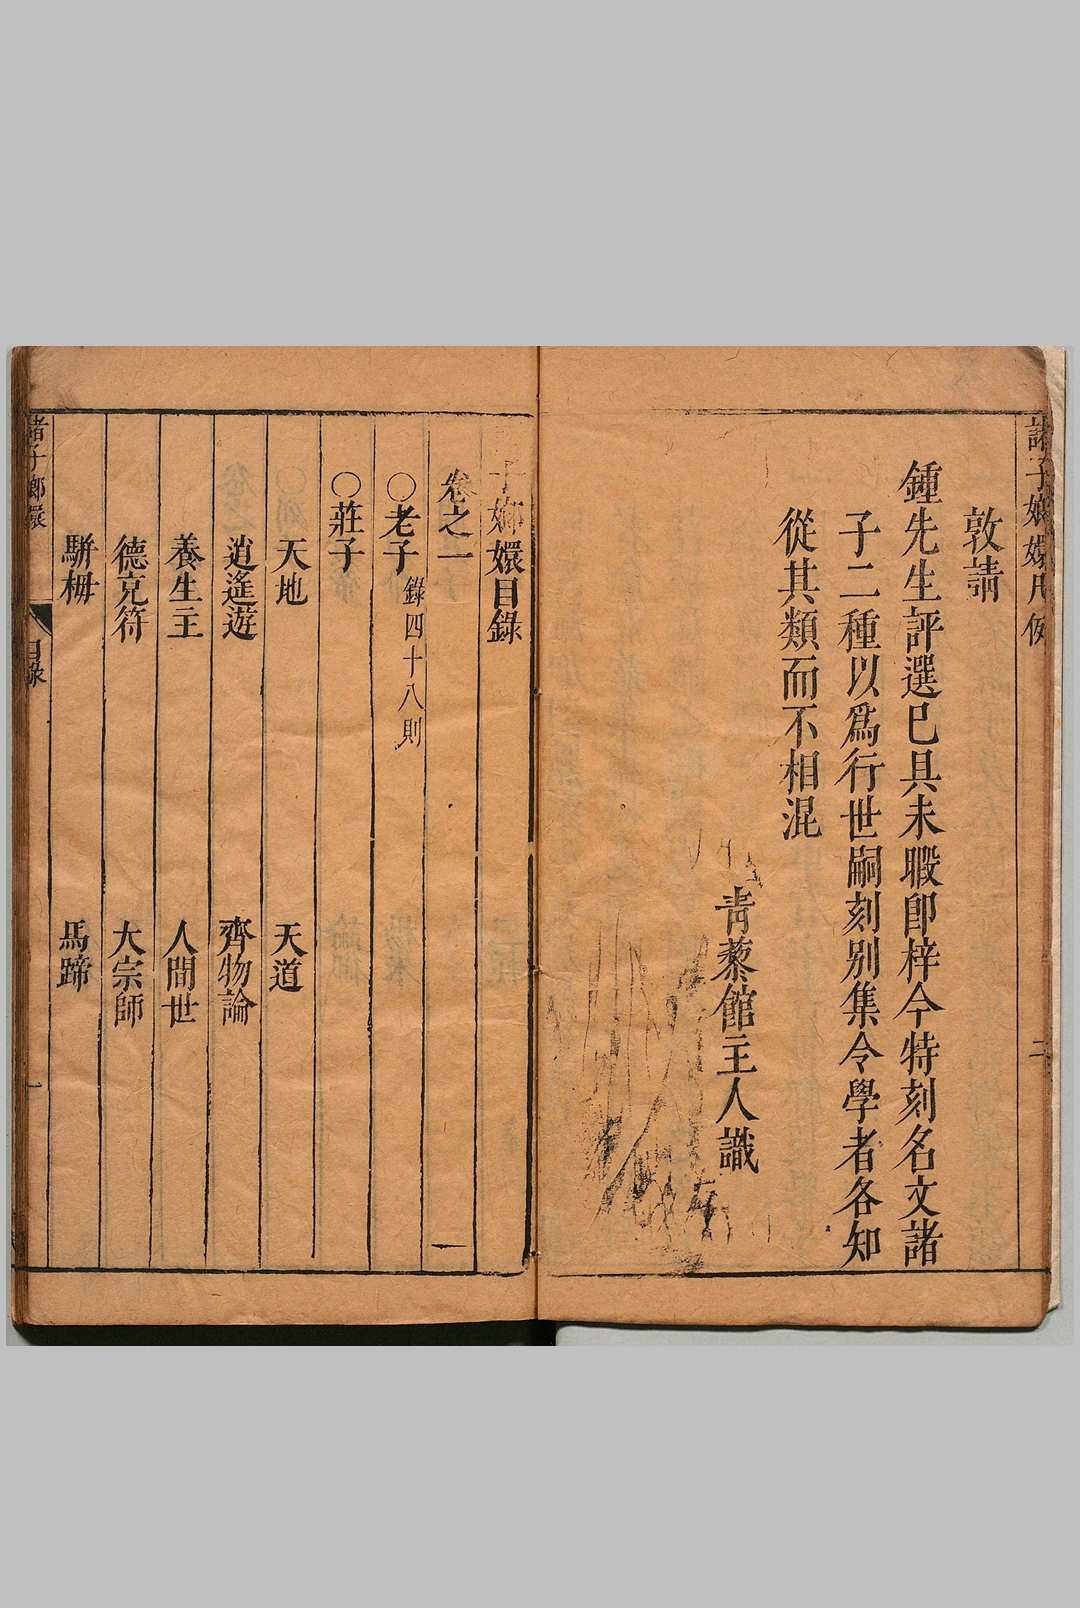 諸子嫏嬛凡例
二
敦請
鍾先生評選已具未暇卽梓今特刻名文諸
子二種以爲行世嗣刻別集令學者各知
從其類而不相混
靑藜館主人識
子嫏嬛目錄
卷之一
一
○老子 錄四十八則
○莊子
天地 天道
逍遙遊 齊物論
養生主 人間世
德充符 大宗師
駢拇 馬蹄
諸子嫏嬛
目錄
一